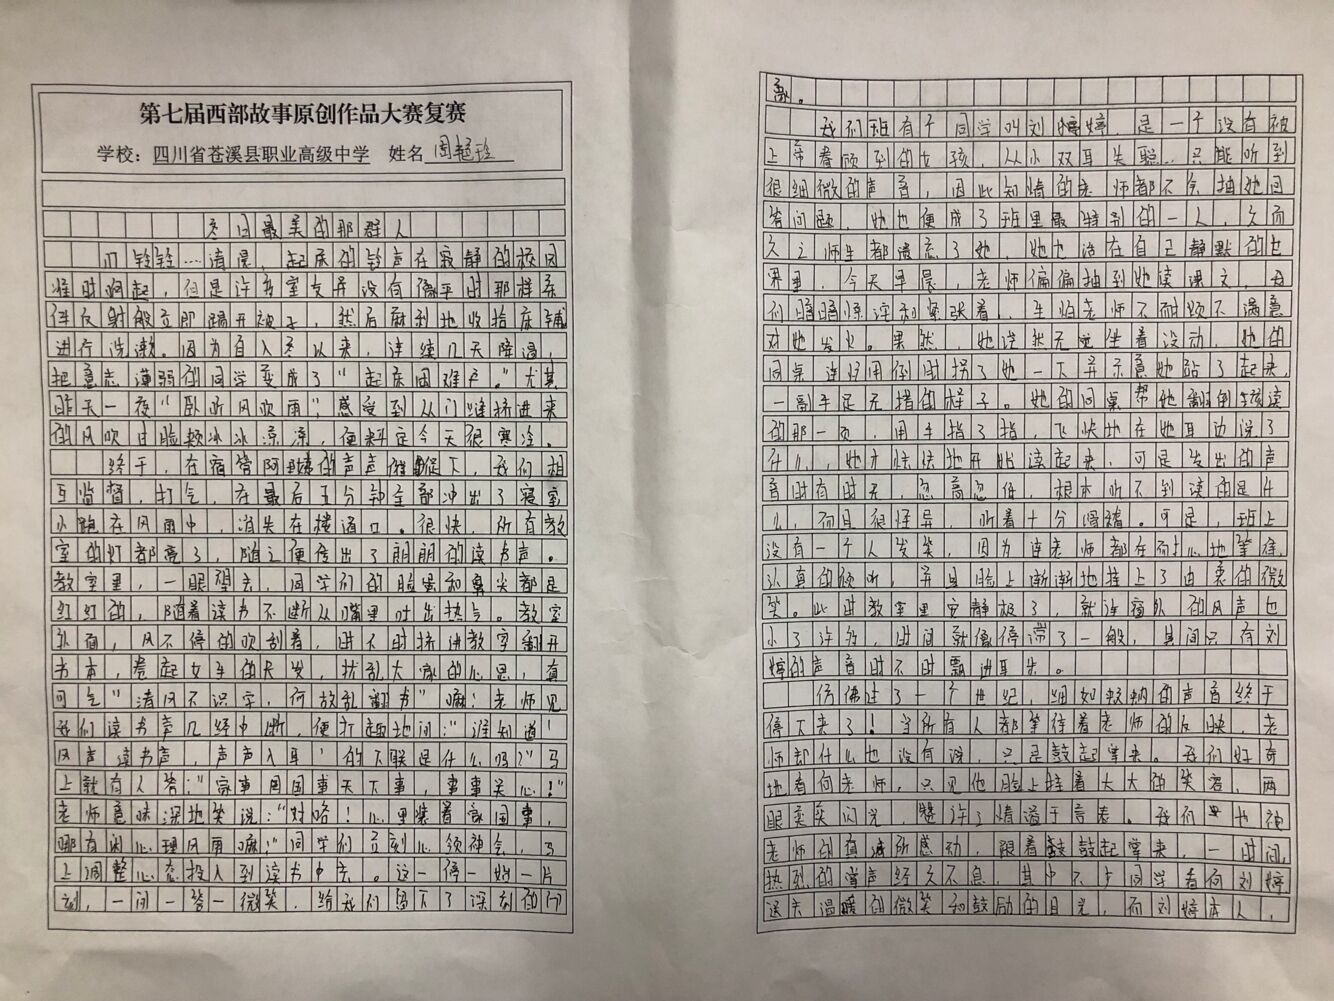 第七届西部故事原创作品大赛复赛
学校：四川省苍溪县职业高级中学 姓名
冬日最美的那群人
叮铃铃…清晨，起床的铃声在寂静的校园
准时响起，但是许多室友并没有像平时那样条
件反射般立即踢开被子，然后麻利地收拾床铺
进行洗漱。因为自入冬以来，连续几天降温，
把意志薄弱的同学变成了“起床困难户。”尤其
昨天一夜“卧听风吹雨”，感受到从门缝挤进来
的风吹 脸颊冰冰凉凉，便料定今天很寒冷。
终于，在宿管阿姨的声声催促下，我们相
互监督，打气，在最后五分钟全部冲出了寝室
小跑在风雨中，消失在楼道口。很快，所有教
室的灯都亮了，随之便传出了朗朗的读书声。
教室里，一眼望去，同学们的脸蛋和鼻尖都是
红红的，随着读书不断从嘴里吐出热气。教室
外面，风不停的吹刮着，时不时挤进教室翻开
书本，卷起女生的长发，扰乱大家的心思，真
可气“清风不识字，何故乱翻书”嘛！老师见
我们读书声几经中断，便打趣地问：“谁知道‘
风声 读书声，声声入耳’的下联是什么吗？”马
上就有人答：“家事国国事天下事，事事关心！”
老师意味深地笑说：“对咯！心里装着家国事，
哪有闲心理风雨嘛！”同学们立刻心领神会，马
上调整心态投入到读书中去。这一停一始一片
刻，一问一答一微笑，给我们留下了深刻的印
象。
我们班有个同学叫刘婷婷，是一个没有被
上帝眷顾到的女孩，从小双耳失聪，只能听到
很细微的声音，因此知情的老师都不会抽她回
答问题，她也便成了班里最特别的一人，久而
久之师生都遗忘了她，她也活在自己静默的世
界里，今天早晨，老师偏偏抽到她读课文，我
们暗暗惊讶和紧张着，生怕老师不耐烦不满意
对她发火。果然，她茫然无觉坐着没动，她的
同桌连忙用倒肘拐了她一下并示意她站了起来，
一副手足无措的样子。她的同桌帮她翻倒该读
的那一页，用手指了指，飞快地在她耳边说了
什么，她才怯怯地开始读起来，可是发出的声
音时有时无，忽高忽低，根本听不到读的是什
么，而且很怪异 听着十分滑稽。可是，班上
没有一个人发笑，因为连老师都在耐心地等待，
认真的倾听，并且脸上渐渐地挂上了由衷的微
笑。此时教室里安静极了，就连窗外的风声也
小了许多，时间就像停滞了一般，其间只有刘
婷的声音时不时飘进耳朵。
仿佛过了一个世纪，细如蚊蚋的声音终于
停下来了！当所有人都等待着老师的反映，老
师却什么也没有说，只是鼓起掌来。我们好奇
地看向老师，只见他脸上挂着大大的笑容，两
眼 闪光，赞许之情溢于言表。我们 也被
老师的真诚所感动，跟着 鼓起掌来，一时间，
热烈的掌声经久不息，其中不少同学看向刘婷
送去温暖的微笑和鼓励的目光，而刘婷本人，